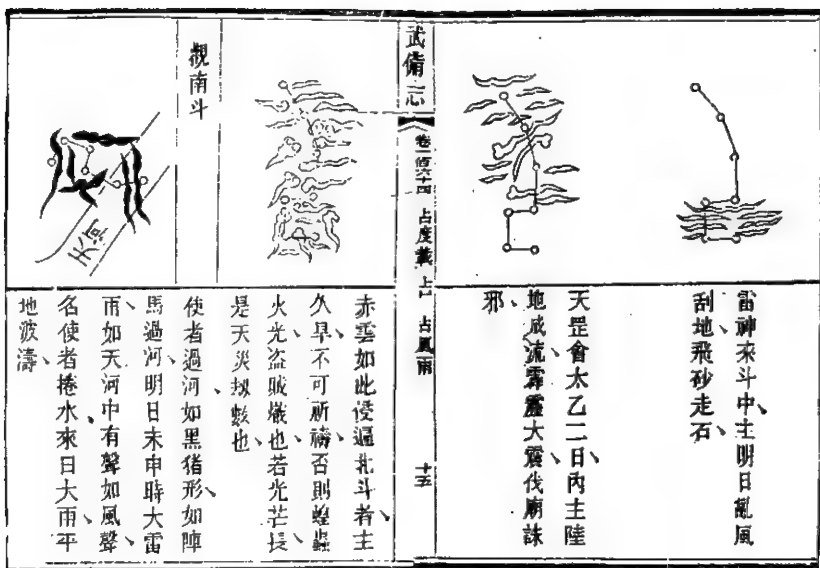 雷神來斗中、主明日亂風
刮地飛砂走石、
天罡會太乙二日、內主陸
地成流、霹靂大震、伐廟誅
邪、
武備志
卷一百六十四 占度載 占 占風雨
十五
赤雲如此侵逼北斗者、主
久旱不可祈禱、否則蝗蟲
火光、盜賊熾也、若光芒長
是天災劫數也、
觀南斗
天河
使者過河、如黑猪形、如陣
馬過河、明日未申時大雷
雨、如天河中有聲如風聲
名使者捲水、來日大雨平
地波濤、